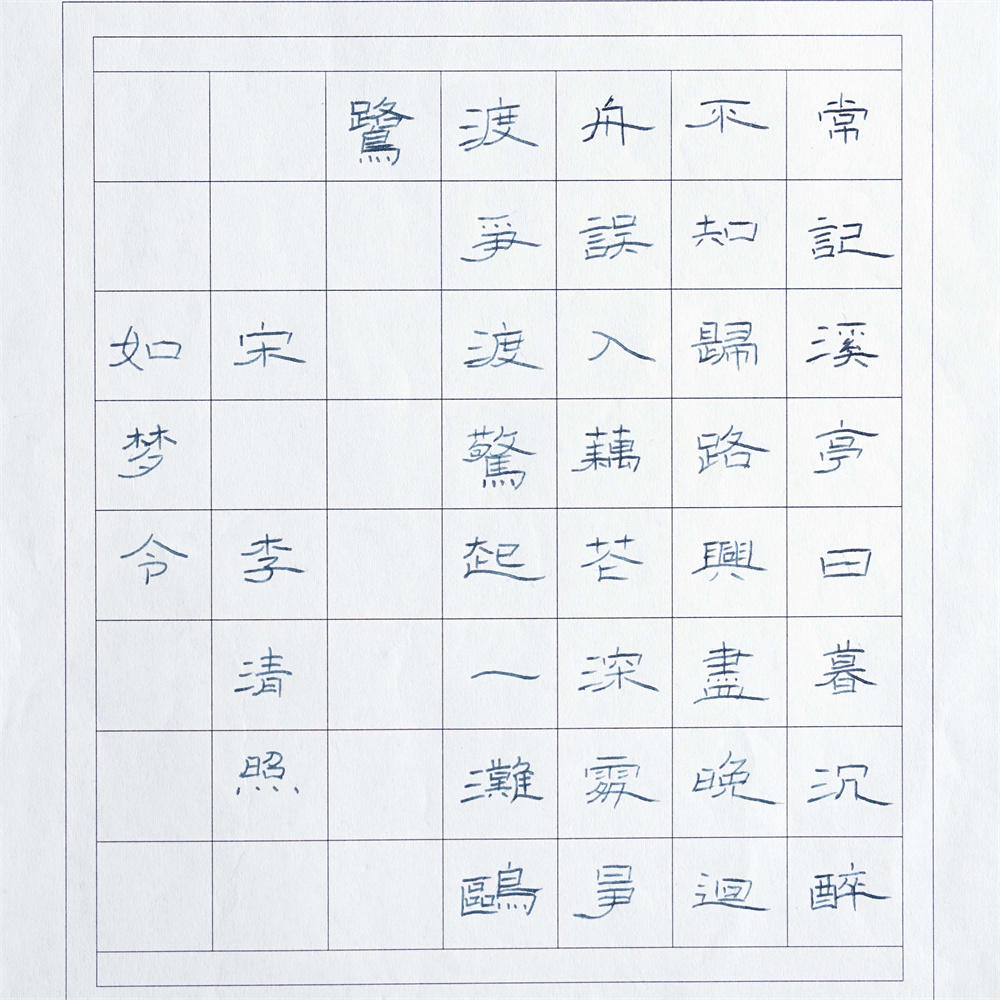 常記溪亭日暮沉醉
不知歸路興盡晚迴
舟誤入藕花深處爭
渡爭渡驚起一灘鷗
鷺
宋 李清照
如梦令